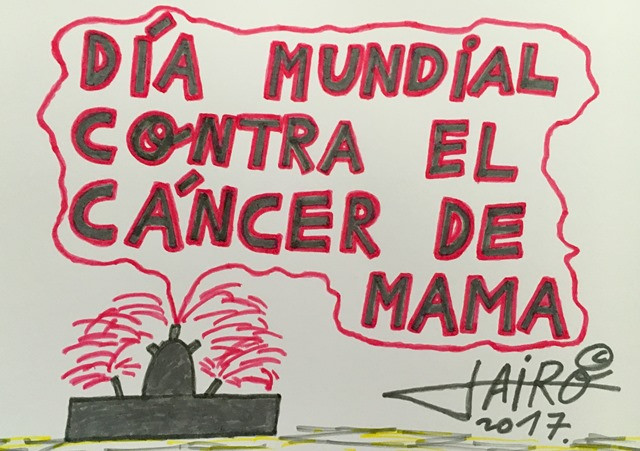 DÍA MUNDIAL
CONTRA EL
CÁNCER DE
MAMA
©
JAIRO
2017.